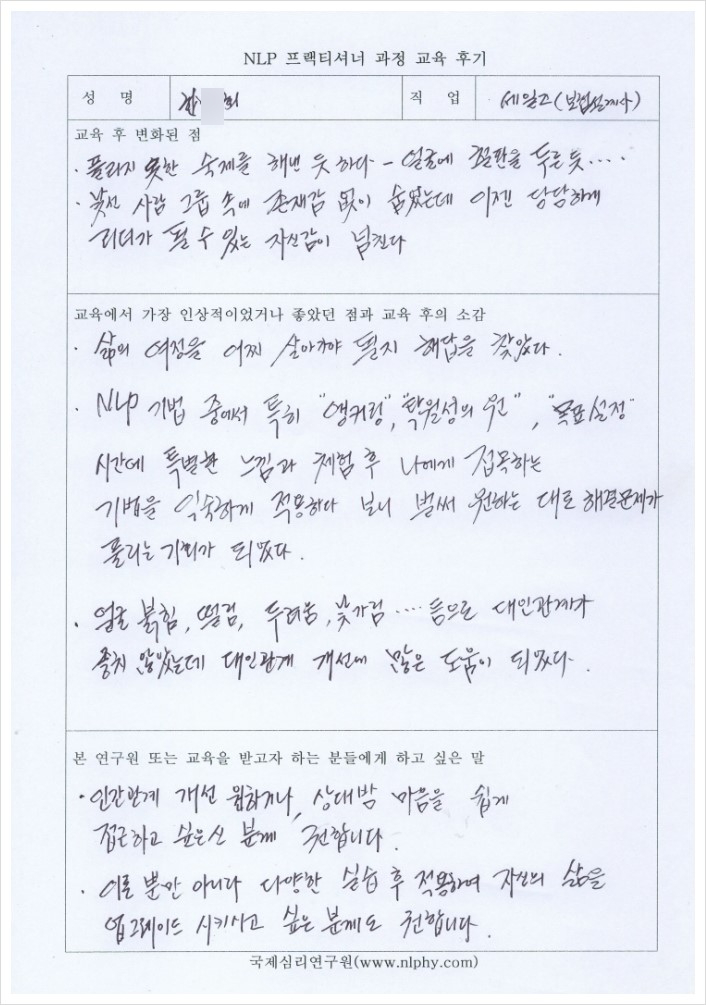 NLP 프랙티셔너 과정 교육 후기
성 명 한 희 직 업 세일즈(보험설계사)
교육 후 변화된 점
· 풀리지 못한 숙제를 해낸 듯 하다 - 얼굴에 철판을 두른듯....
· 낯선 사람 그룹 속에 존재감 없이 숨었는데 이젠 당당하게
리더가 될 수 있는 자신감이 넘친다
교육에서 가장 인상적이었거나 좋았던 점과 교육 후의 소감
· 삶의 여정을 어찌 살아가야 될지 해답을 찾았다.
· NLP 기법 중에서 특히 "앵커링", "탁월성의 원", "목표설정"
시간에 특별한 느낌과 체험 후 나에게 접목하는
기법을 익숙하게 적용하다 보니 벌써 원하는 대로 해결문제가
풀리는 기회가 되었다.
· 얼굴 붉힘, 떨림, 두려움, 낯가림.... 등으로 대인관계가
좋치 않았는데 대인관계 개선에 많은 도움이 되었다.
본 연구원 또는 교육을 받고자 하는 분들에게 하고 싶은 말
· 인간관계 개선 원하거나, 상대방 마음을 쉽게
접근하고 싶으신 분께 권합니다.
· 이론 뿐만 아니라 다양한 실습 후 적용하여 자신의 삶을
업그레이드 시키시고 싶은 분께도 권합니다.
국제심리연구원(www.nlphy.com)